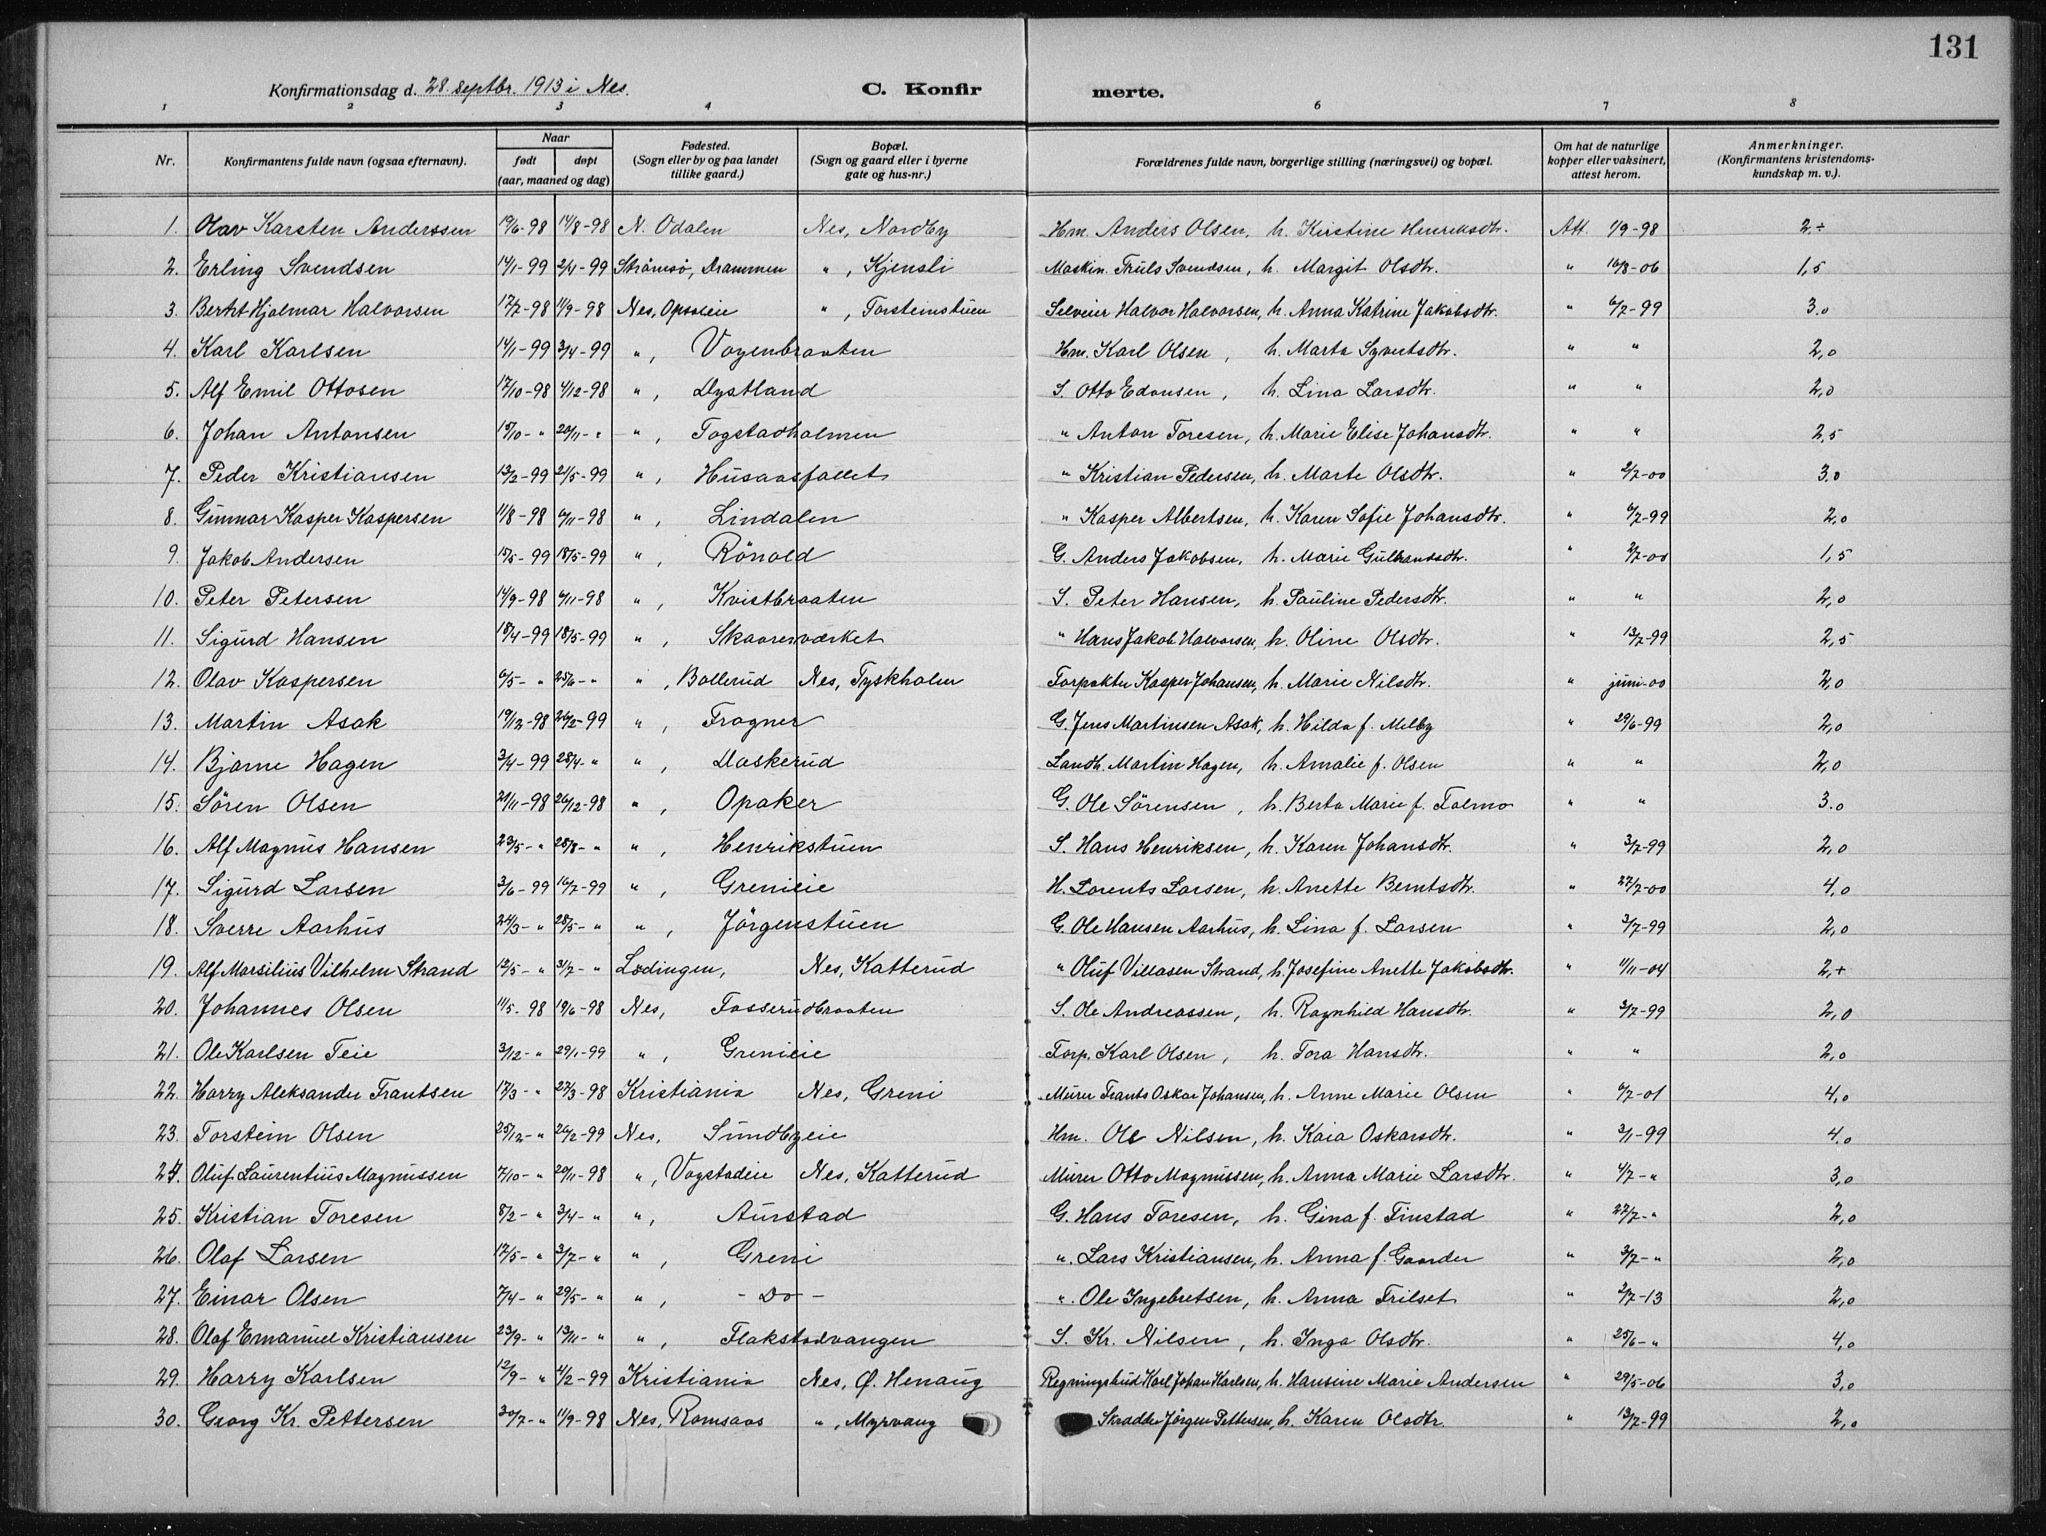 131
Konfirmationsdag d. 28. septbr. 1913 i Nes. C. Konfirmerte.
1 2 3 4 6 7 8
Nr. Konfirmantens fulde navn (ogsaa efternavn). Naar født døpt (aar, maaned og dag) Fødested. (Sogn eller by og paa landet tillike gaard.) Bopæl. (Sogn og gaard eller i byerne gate og hus-nr.) Forældrenes fulde navn, borgerlige stilling (næringsvei) og bopæl. Om hat de naturlige kopper eller vaksinert, attest herom. Anmerkninger. (Konfirmantens kristendomskundskap m. v.).
1. Olav Karsten Anderssen 19/6-98 14/8-98 N. Odalen Nes, Nordby Hm. Anders Olsen, h. Kirstine Henriksdtr. Att. 1/9-98 2,÷
2. Erling Svendsen 14/1-99 2/4-99 Strømsø, Drammen ", Kjensli Maskin. Truls Svendsen, h. Margit Olsdtr. " 16/8-06 1,5
3. Berht Hjalmar Halvorsen 17/7-98 11/9-98 Nes, Opsaleie ", Torsteinstuen Selveier Halvor Halvorsen, h. Anna Katrine Jakobsdtr. " 6/7-99 3,0
4. Karl Karlsen 14/1-99 3/4-99 ", Voyenbraaten Hm. Karl Olsen, h. Marta Syvertsdtr. " " 2,0
5. Alf Emil Ottosen 17/10-98 4/12-98 ", Dystland S. Otto Edvnsen, h. Lina Larsdtr. " " 2,0
6. Johan Antonsen 15/10- " 20/11- " ", Togstadholmen " Anton Toresen, h. Marie Elise Johansdtr. " " 2,5
7. Peder Kristiansen 13/2-99 21/5-99 ", Husaasfallet " Kristian Pedersen, h. Marte Olsdtr. " 2/7-00 3,0
8. Gunnar Kasper Kaspersen 11/8-98 6/11-98 ", Lindalen " Kasper Albertsen, h. Karen Sofie Johansdtr. " 6/7-99 2,0
9. Jakob Andersen 15/5-99 18/5-99 ", Rönold G. Anders Jakobsen, h. Marie Gulbrandsdtr. " 2/7-00 1,5
10. Peter Petersen 14/9-98 6/11-98 ", Kvistbraaten S. Peter Hansen, h. Pauline Pedersdtr. " " 2,0
11. Sigurd Hansen 18/4-99 18/5-99 ", Skaaresværket " Hans Jakob Halvorsen, h. Oline Olsdtr. " 13/7-99 2,5
12. Olav Kaspersen 6/5- " 25/6- " ", Bollerud Nes, Tyskholm Forpakter Kasper Johansen, h. Marie Nilsdtr. " juni-00 2,0
13. Martin Asak 19/12-98 26/2-99 ", Frogner G. Jens Martinsen Asak, h. Hilda f. Melby " 29/6-99 2,0
14. Bjarne Hagen 3/4-99 28/4- " ", Daskerud Landh. Martin Hagen, h. Amalie f. Olsen " " 2,0
15. Sören Olsen 21/11-98 26/12-98 ", Opaker G. Ole Sörensen, h. Berta Marie f. Tolmo " " 3,0
16. Alf Magnus Hansen 23/5- " 28/8- " ", Henrikstuen S. Hans Henriksen, h. Karen Johansdtr. " 3/7-99 2,0
17. Sigurd Larsen 3/6-99 16/7-99 ", Grenieie H. Lorents Larsen, h. Anette Berntsdtr. " 27/7-00 4,0
18. Sverre Aarhus 24/3- " 28/5- " ", Jörgenstuen G. Ole Hansen Aarhus, h. Lina f. Larsen " 3/7-99 2,0
19. Alf Marsilius Vilhelm Strand 12/5- " 31/7- " Lødingen, Nes, Katterud " Oluf Villasen Strand, h. Josefine Anette Jakobsdtr. " 11/11-04 2,+
20. Johannes Olsen 11/5. 98 19/6-98 Nes, Fosserudbraaten S. Ole Andreassen, h. Ragnhild Hansdtr. " 3/7-99 2,0
21. Ole Karlsen Teie 3/12- " 29/1-99 ", Grenieie Forp. Karl Olsen, h. Tora Hansdtr. " " 2,0
22. Harry Aleksander Frantsen 17/3- " 27/3-98 Kristiania Nes, Greni Murer Frants Oskar Johansen, h. Anne Marie Olsen " 6/7-01 4,0
23. Torstein Olsen 25/12- " 26/2-99 Nes, Sundbyeie Hm. Ole Nilsen, h. Kaia Oskarsdtr. " 3/1-99 4,0
24. Oluf Laurentius Magnussen 7/10- " 20/11-98 ", Vogstadeie Nes, Katterud Murer Otto Magnussen, h. Anna Marie Larsdtr. " 4/7- " 3,0
25. Kristian Toresen 8/2- " 3/4- " ", Aurstad G. Hans Toresen, h. Gina f. Finstad " 27/7- " 2,0
26. Olaf Larsen 17/5- " 3/7- " ", Greni " Lars Kristiansen, h. Anna f. Gaarder " 3/7- " 2,0
27. Einar Olsen 7/4- " 29/5- " ", - Do - " Ole Ingebretsen, h. Anna Trilset " 2/7-13 2,0
28. Olaf Emanuel Kristiansen 23/9- " 13/11- " ", Flakstadvangen S. Kr. Nilsen, h. Inga Olsdtr. " 25/6- " 4,0
29. Harry Karlsen 12/9- " 4/2-99 Kristiania Nes, Ø. Henaug Regningsbud Karl Johan Karlsen, h. Hansine Marie Andersen " 29/5-06 3,0
30. Georg Kr. Pettersen 30/7- " 11/9-98 Nes, Romsaas ", Myrvang Skrædder Jörgen Pettersen, h. Karen Olsdtr. " 13/7-99 2,0